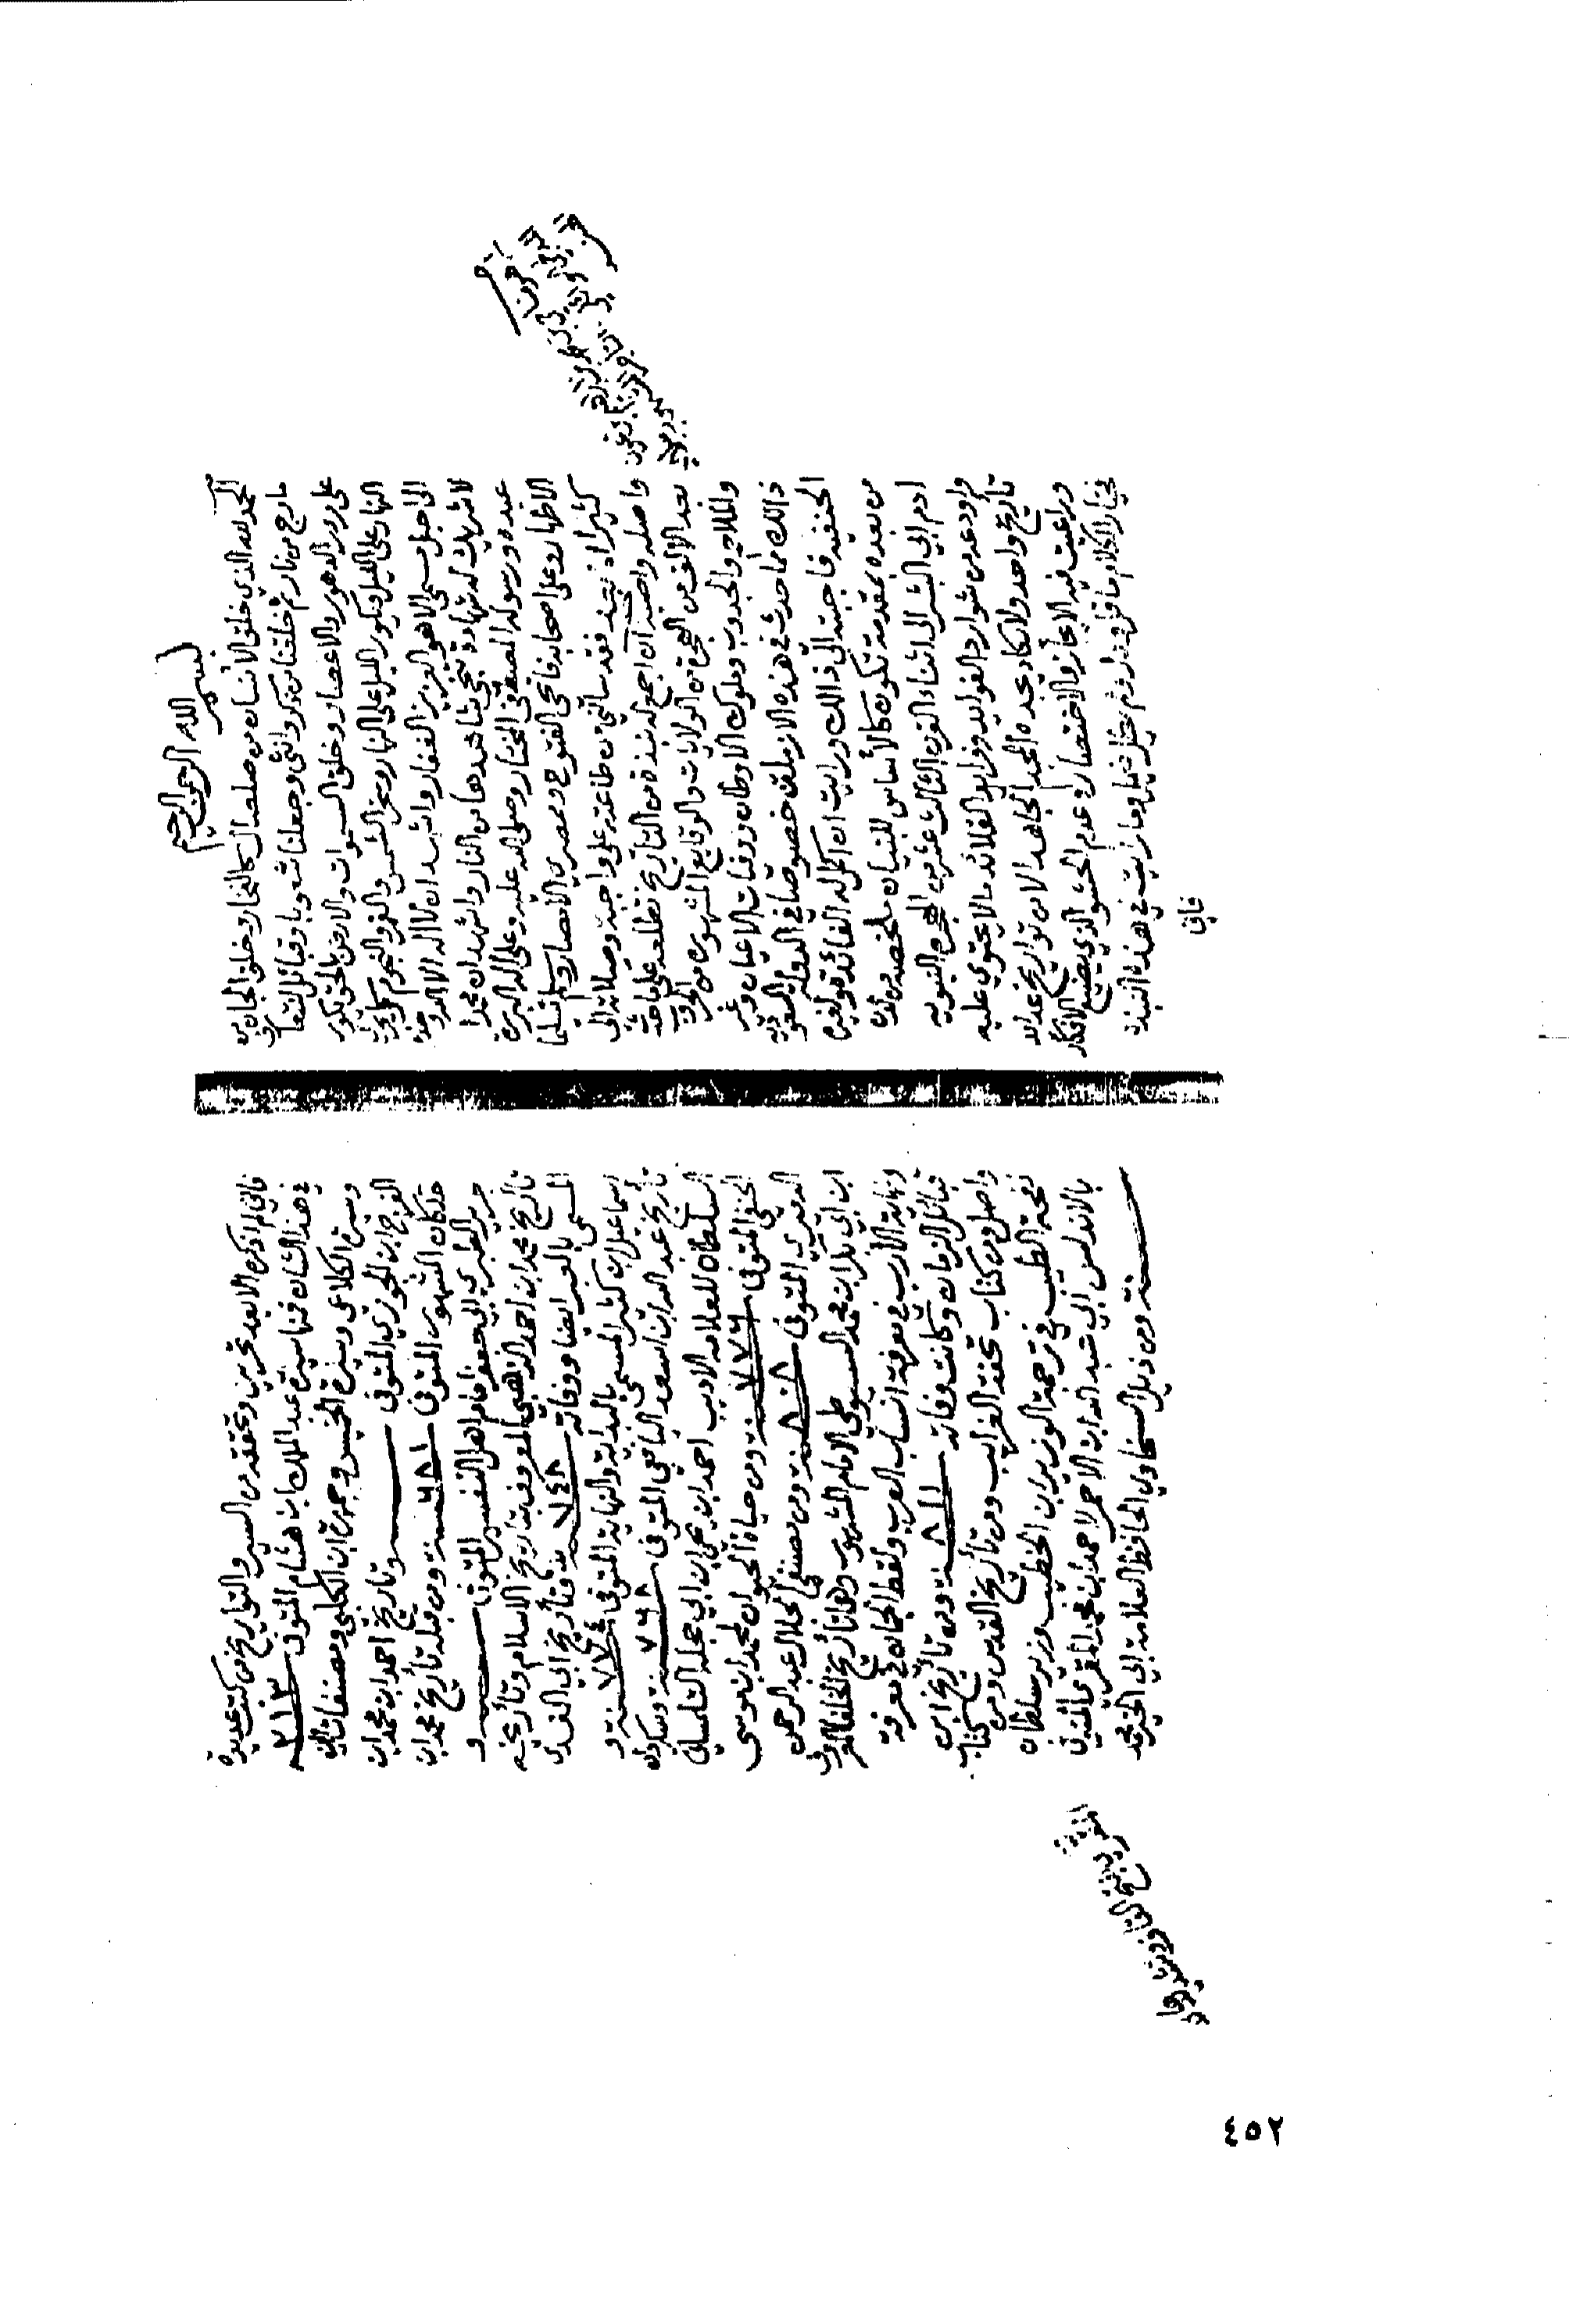 بسم الله الرحمن الرحيم
الحمد لله الذي خلق الانسان من صلصال كالفخار وخلق الجان من
مارج من نار ثم خلقنا من ذكر وانثى وجعلنا شعوبا وقبائل لنتعارف
على مرور الدهور والاعصار وخلق السموات والارض بالحق يكور
النهار على الليل ويكور الليل على النهار وسخر الشمس والقمر والنجوم كل يجري
الى اجل مسمى الا هو العزيز الغفار واشهد ان لا اله الا الله وحده
لا شريك له شهادة تنجي شاهدها من النار واشهد ان محمدا
عبده ورسوله المصطفى المختار وصلى الله عليه وعلى اله البررة
الاطهار وعلى اصحابه فاتحي الفتوح وممصري الامصار وسلم تسليما
كثيرا اذ فقد سالني من طاعته علي واجبة وصلاته الي
واصله واصبه ان اجمع له نبذة من التاريخ تطلعه على ما حدث
بعد الالف من الهجرة من الولايات والوقايع المشهورة من الحروب
والملاحم والجدوب وملوك الاوطان ووفيات الاعيان وغير
ذالك مما حدث في هذه الازمان خصوصا في الدولة السعودية
الحنفيه فاجبته الى ذالك ورايت ان اكمل له الفائدة
من بعده بمقدمة تكون كالأساس للبنيان ملخصه من لدن
ادم ابي البشر الى اثناء القرن الثالث عشر من الهجرة النبويه
واودعه من شوارد الفوايد وفرايد القلائد ما لا يحتوي عليه
تاريخ واحد ولا يكاد يجده المجد المجاهد الا من تواريخ عدة
وراعيت فيه الايجاز والاختصار وعدم الحشو الذي يضيع الافكار
فخيار الكلام ما قل ودل ولم يطل فيمل وما رايت في هذه النبذة
فاني
فاني لم اذكره الا بعد تحريره وتحققه من السير والتواريخ من كتب عديدة
في هذا الشان فمنها سيرة عبد الملك ابن هشام المتوفى سنة ٢١٣
وسيرة الكلاعي وسيرة الخميس وجمهرة ابن الكلبي ومصنفات ابن
الفرج ابن الجوزي المتوفى سنة وتاريخ احمد ابن محمد ابن
خلكان المشهور المتوفى سنة ٦٨١ ومن قبله تأريخ محمد ابن
جرير الطبري ابي جعفر امام اهل التفسير المتوفى سنة و
تأريخ محمد ابن احمد الذهبي المعروف بتاريخ الاسلام وتأريخه
المسمى بالعبر ايضا ووفاته سنة ٧٤٨ وتأريخ ابي الفدى
اسماعيل ابن كثير المسمى بالبداية والنهاية المتوفى سنة ٧٧٤ و
تأريخ عبد الله ابن اسعد اليافعي المتوفى سنة ٧٦٨ وسكردان
السلطان للعلامه الاديب احمد ابن يحيى ابن ابي حجلة التلمساني
الحنفي المتوفى سنة ٧٧٦ ومن حياة الحيوان لمحمد ابن موسى
الدميري المتوفى سنة ٨٠٨ ومن مصنفي الجلال عبد الرحمن
ابن ابي بكر ابن محمد السيوطي الامام المشهور وهما تأريخ الخلفا
ونهاية الأرب في معرفة انساب العرب ولقط الجمان في معرفة
قبائل الزمان وكانت وفاته سنة ٨١١ ومن تأريخ
واصل ومن كتاب تحفة الغرايب ومن تأريخ القدس ومن كتاب
نفحة الطيب في ترجمة الوزير ابن الخطيب وزير سلطان
بالاندلس ابي عبد الله ابن الاحمر لاحمد ابن محمد المقري المتوفى
سنة ومن ذيل السخاوي الحافظ العلامة ابي الخير محمد
٤٥٢